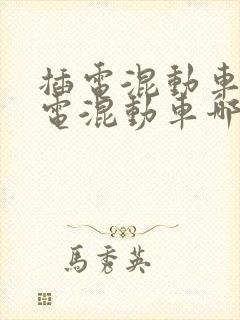 插電混動車
電混動車哪
馬秀英